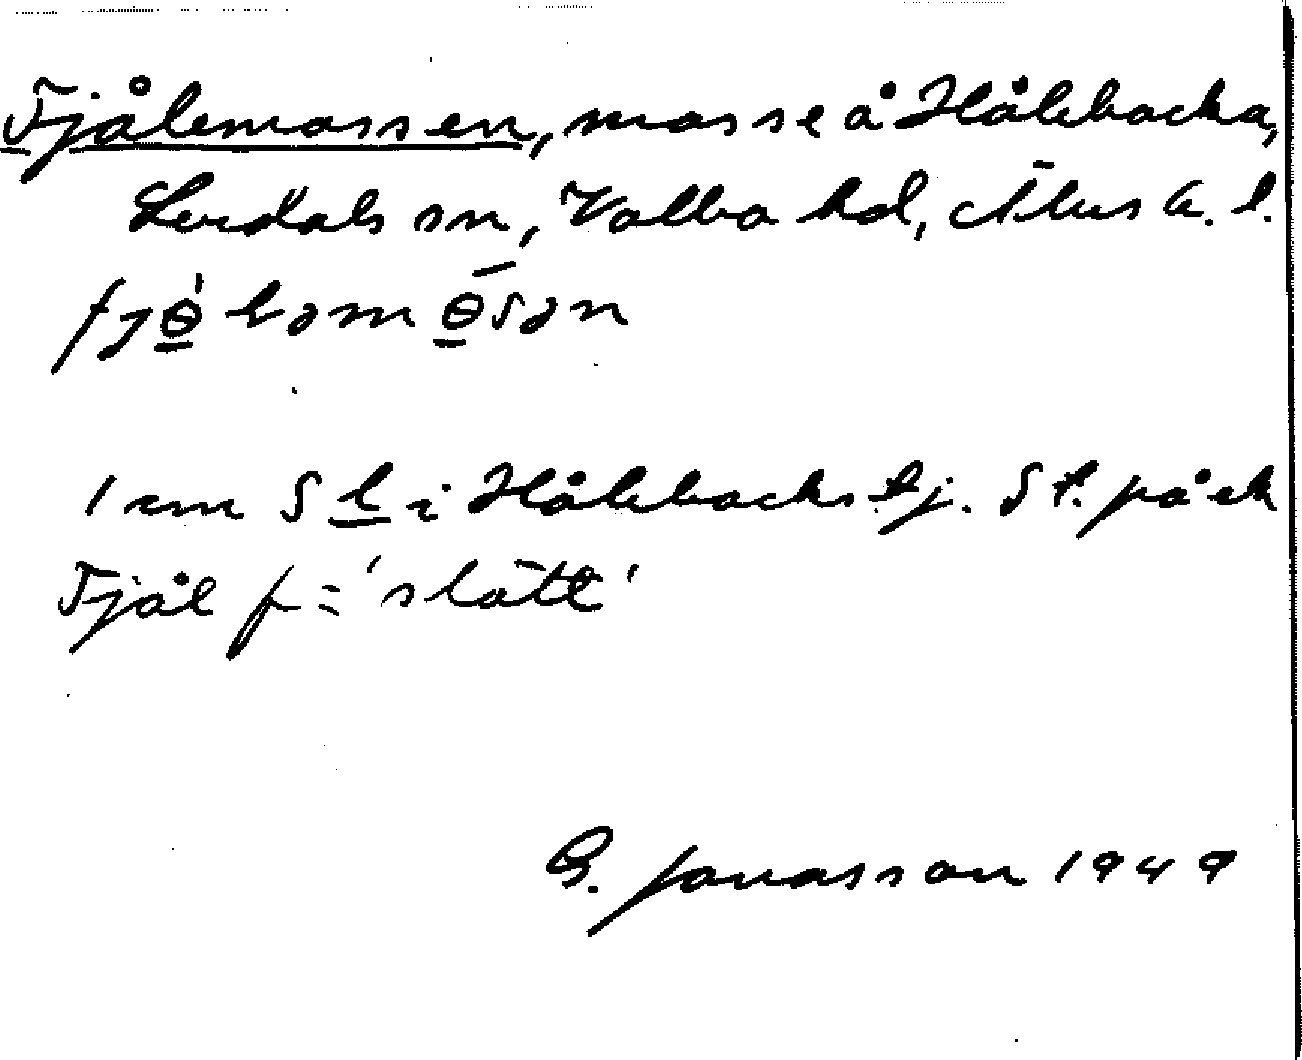 Fjålemossen, mosse å Hålebacka,
Lerdals sn, Valbo hd, Älvs b. l.
fjɵ̀ləmɵsən
1 cm S l i Hålebacks tj. St. på ek
Fjål f = 'slätt'
G. Jonasson 1949